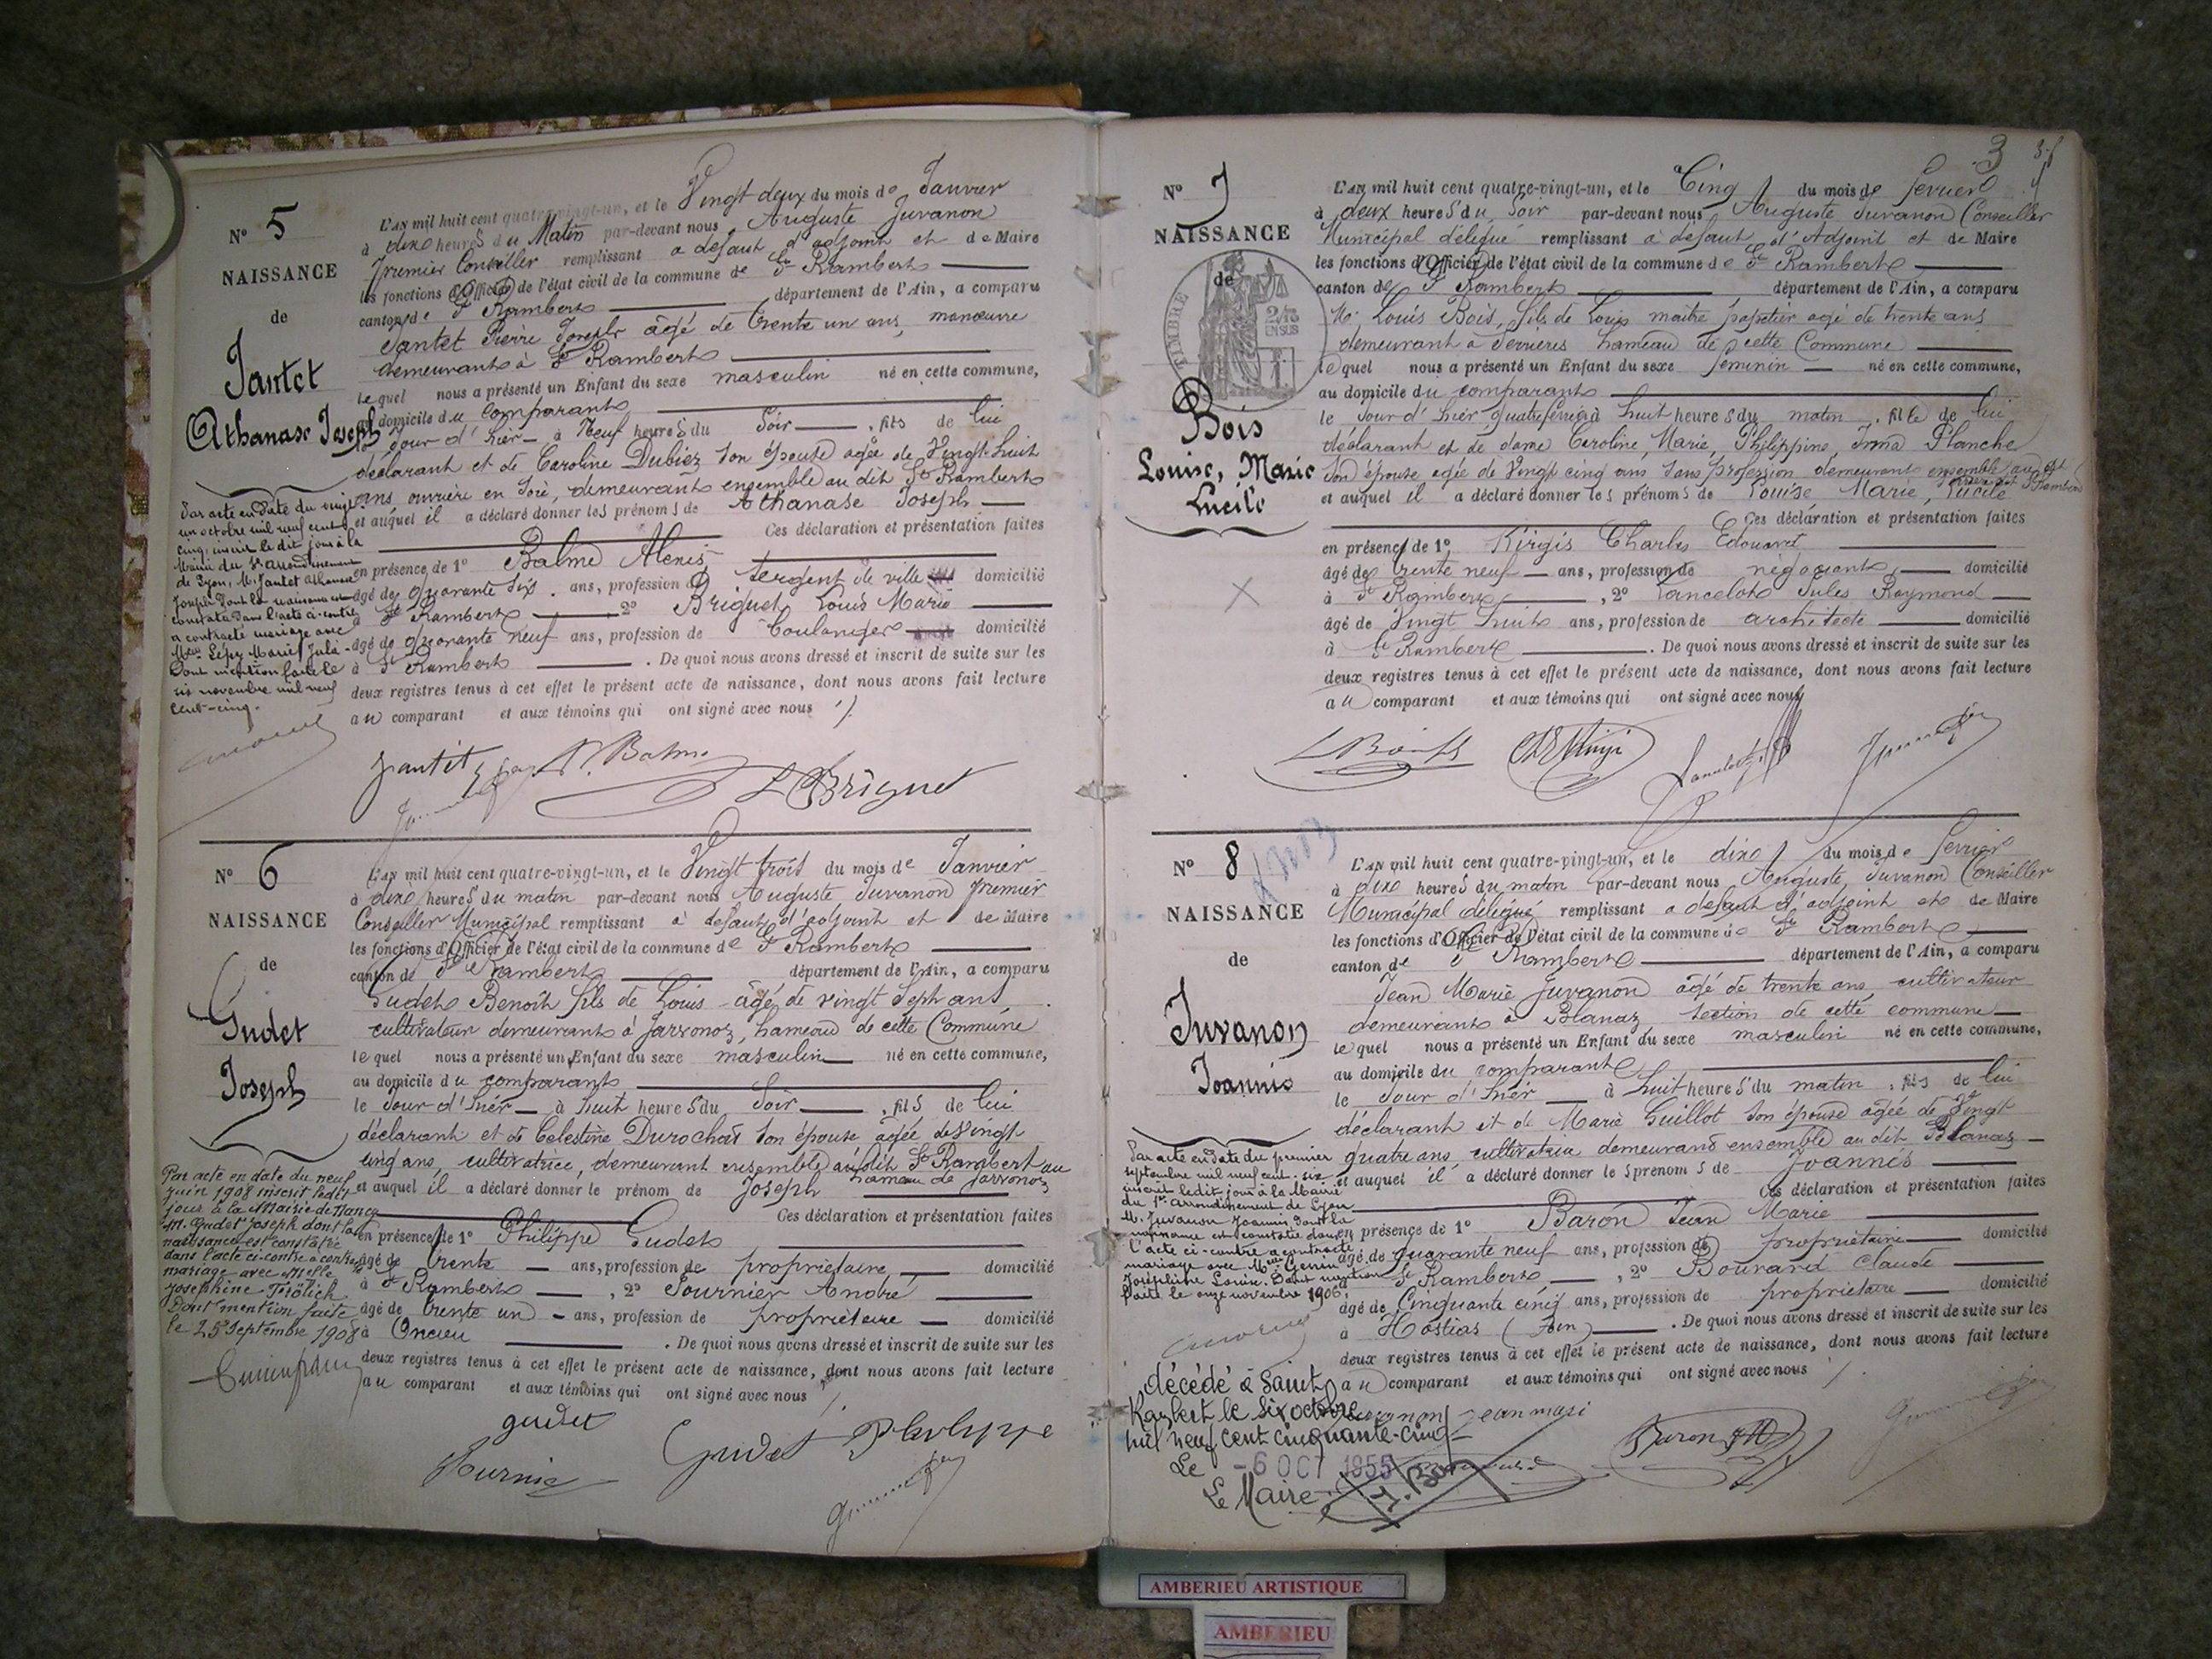 N° 5
NAISSANCE
de
Jantet
Athanase Joseph
L'AN mil huit cent quatre-vingt-un, et le Vingt deux du mois de Janvier
à dix heures du Matin par-devant nous Auguste Juvanon
premier Conseiller remplissant à défaut d'adjoint et de Maire
les fonctions d'Officier de l'état civil de la commune de St Rambert
canton de St Rambert département de l'Ain, a comparu
Jantet Pierre Joseph âgé de trente un ans, manœuvre
demeurant à St Rambert
lequel nous a présenté un Enfant du sexe masculin né en cette commune,
au domicile du comparant
le Jour d'hier à Neuf heures du Soir, fils de lui
déclarant et de Caroline Dubiez son épouse agée de Vingt-huit
ans ouvrière en soie, demeurant ensemble au dit St Rambert
et auquel il a déclaré donner les prénoms de Athanase Joseph
Ces déclaration et présentation faites
en présence de 1° Balme Alexis
âgé de quarante six ans, profession de sergent de ville domicilié
à St Rambert 2° Briguet Louis Marie
âgé de quarante neuf ans, profession de boulanger domicilié
à St Rambert . De quoi nous avons dressé et inscrit de suite sur les
deux registres tenus à cet effet le présent acte de naissance, dont nous avons fait lecture
au comparant et aux témoins qui ont signé avec nous
Par acte en date du vingt
un octobre mil neuf cent
cinq, inscrit le dit jour à la
Mairie du arrondissement
de Lyon, M. Jantet Athanase
Joseph dont la naissance est
constatée dans l'acte ci-contre
a contracté mariage avec
Marie Julie
Dont mention faite le
six novembre mil neuf
cent-cinq.
Jantet P. Balme
L Briguet
N° 6
NAISSANCE
de
Gudet
Joseph
L'AN mil huit cent quatre-vingt-un, et le Vingt trois du mois de Janvier
à dix heures du matin par-devant nous Auguste Juvanon premier
Conseiller Municipal remplissant à défaut d'adjoint et de Maire
les fonctions d'Officier de l'état civil de la commune de St Rambert
canton de St Rambert département de l'Ain, a comparu
Gudet Benoît fils de Louis âgé de vingt sept ans
cultivateur demeurant à Javronoz, hameau de cette Commune
lequel nous a présenté un Enfant du sexe masculin né en cette commune,
au domicile du comparant
le Jour d'hier à huit heures du Soir, fils de lui
déclarant et de Celestine Durochat son épouse âgée de Vingt
cinq ans, cultivatrice, demeurant ensemble au dit St Rambert au
hameau de Javronoz
et auquel il a déclaré donner le prénom de Joseph
Ces déclaration et présentation faites
en présence de 1° Philippe Gudet
âgé de trente ans, profession de propriétaire domicilié
à St Rambert, 2° Fournier André
âgé de trente un ans, profession de propriétaire domicilié
à Oncieu . De quoi nous avons dressé et inscrit de suite sur les
deux registres tenus à cet effet le présent acte de naissance, dont nous avons fait lecture
au comparant et aux témoins qui ont signé avec nous
Par acte en date du neuf
juin 1908 inscrit ledit
jour à la Mairie de Nancy
M. Gudet Joseph dont la
naissance est constatée
dans l'acte ci-contre a contracté
mariage avec Melle
Joséphine Frölich
Dont mention faite
le 25 Septembre 1908
gudet
Gudet Philippe
Fournier
3
N° 7
NAISSANCE
de
TIMBRE
2/10
EN SUS
Bois
Louise, Marie
Lucile
L'AN mil huit cent quatre-vingt-un, et le Cinq du mois de fevrier
à deux heures du Soir par-devant nous Auguste Juvanon Conseiller
Municipal délégué remplissant à défaut d'Adjoint et de Maire
les fonctions d'Officier de l'état civil de la commune de St Rambert
canton de St Rambert département de l'Ain, a comparu
Mr Louis Bois, fils de Louis maître papetier agé de trente ans
demeurant à Serrières hameau de cette Commune
lequel nous a présenté un Enfant du sexe féminin né en cette commune,
au domicile du comparant
le Jour d'hier quatre fevrier à huit heures du matin, fille de lui
déclarant et de dame Caroline, Marie, Philippine, Irma Planche
son épouse agée de Vingt cinq ans sans profession demeurant ensemble au dit
et auquel il a déclaré donner les prénoms de Louise Marie, Lucile
Ces déclaration et présentation faites
en présence de 1° Kirgis Charles Edouard
âgé de trente neuf ans, profession de negociant domicilié
à St Rambert, 2° Lancelot Jules Raymond
âgé de Vingt huit ans, profession de architecte domicilié
à St Rambert . De quoi nous avons dressé et inscrit de suite sur les
deux registres tenus à cet effet le présent acte de naissance, dont nous avons fait lecture
au comparant et aux témoins qui ont signé avec nous
L Bois fils
N° 8
NAISSANCE
de
Juvanon
Joannès
L'AN mil huit cent quatre-vingt-un, et le dix du mois de fevrier
à dix heures du matin par-devant nous Auguste Juvanon Conseiller
Municipal délégué remplissant à défaut d'adjoint et de Maire
les fonctions d'Officier de l'état civil de la commune de St Rambert
canton de St Rambert département de l'Ain, a comparu
Jean Marie Juvanon âgé de trente ans cultivateur
demeurant à Blanaz section de cette commune
lequel nous a présenté un Enfant du sexe masculin né en cette commune,
au domicile du comparant
le Jour d'hier à huit heures du matin, fils de lui
déclarant et de Marie Guillot son épouse âgée de Vingt
quatre ans cultivatrice demeurant ensemble au dit Blanaz
et auquel il a déclaré donner les prénoms de Joannès
Ces déclaration et présentation faites
en présence de 1° Baron Jean Marie
âgé de quarante neuf ans, profession de propriétaire domicilié
à St Rambert, 2° Bouvard Claude
âgé de Cinquante cinq ans, profession de propriétaire domicilié
à Hostias (Ain) . De quoi nous avons dressé et inscrit de suite sur les
deux registres tenus à cet effet le présent acte de naissance, dont nous avons fait lecture
au comparant et aux témoins qui ont signé avec nous
Par acte en date du premier
septembre mil neuf cent six
inscrit ledit jour à la Mairie
du 1er arrondissement de Lyon
M. Juvanon Joannès dont la
naissance est constatée dans
l'acte ci-contre a contracté
mariage avec Melle Genin
Joséphine Louise. Dont mention
faite le onze novembre 1906.
décédé à Saint
Rambert le six octobre
mil neuf cent cinquante-cinq
Le - 6 OCT 1955
Le Maire
Juvanon jean mari
Baron JM
AMBERIEU ARTISTIQUE
AMBERIEU